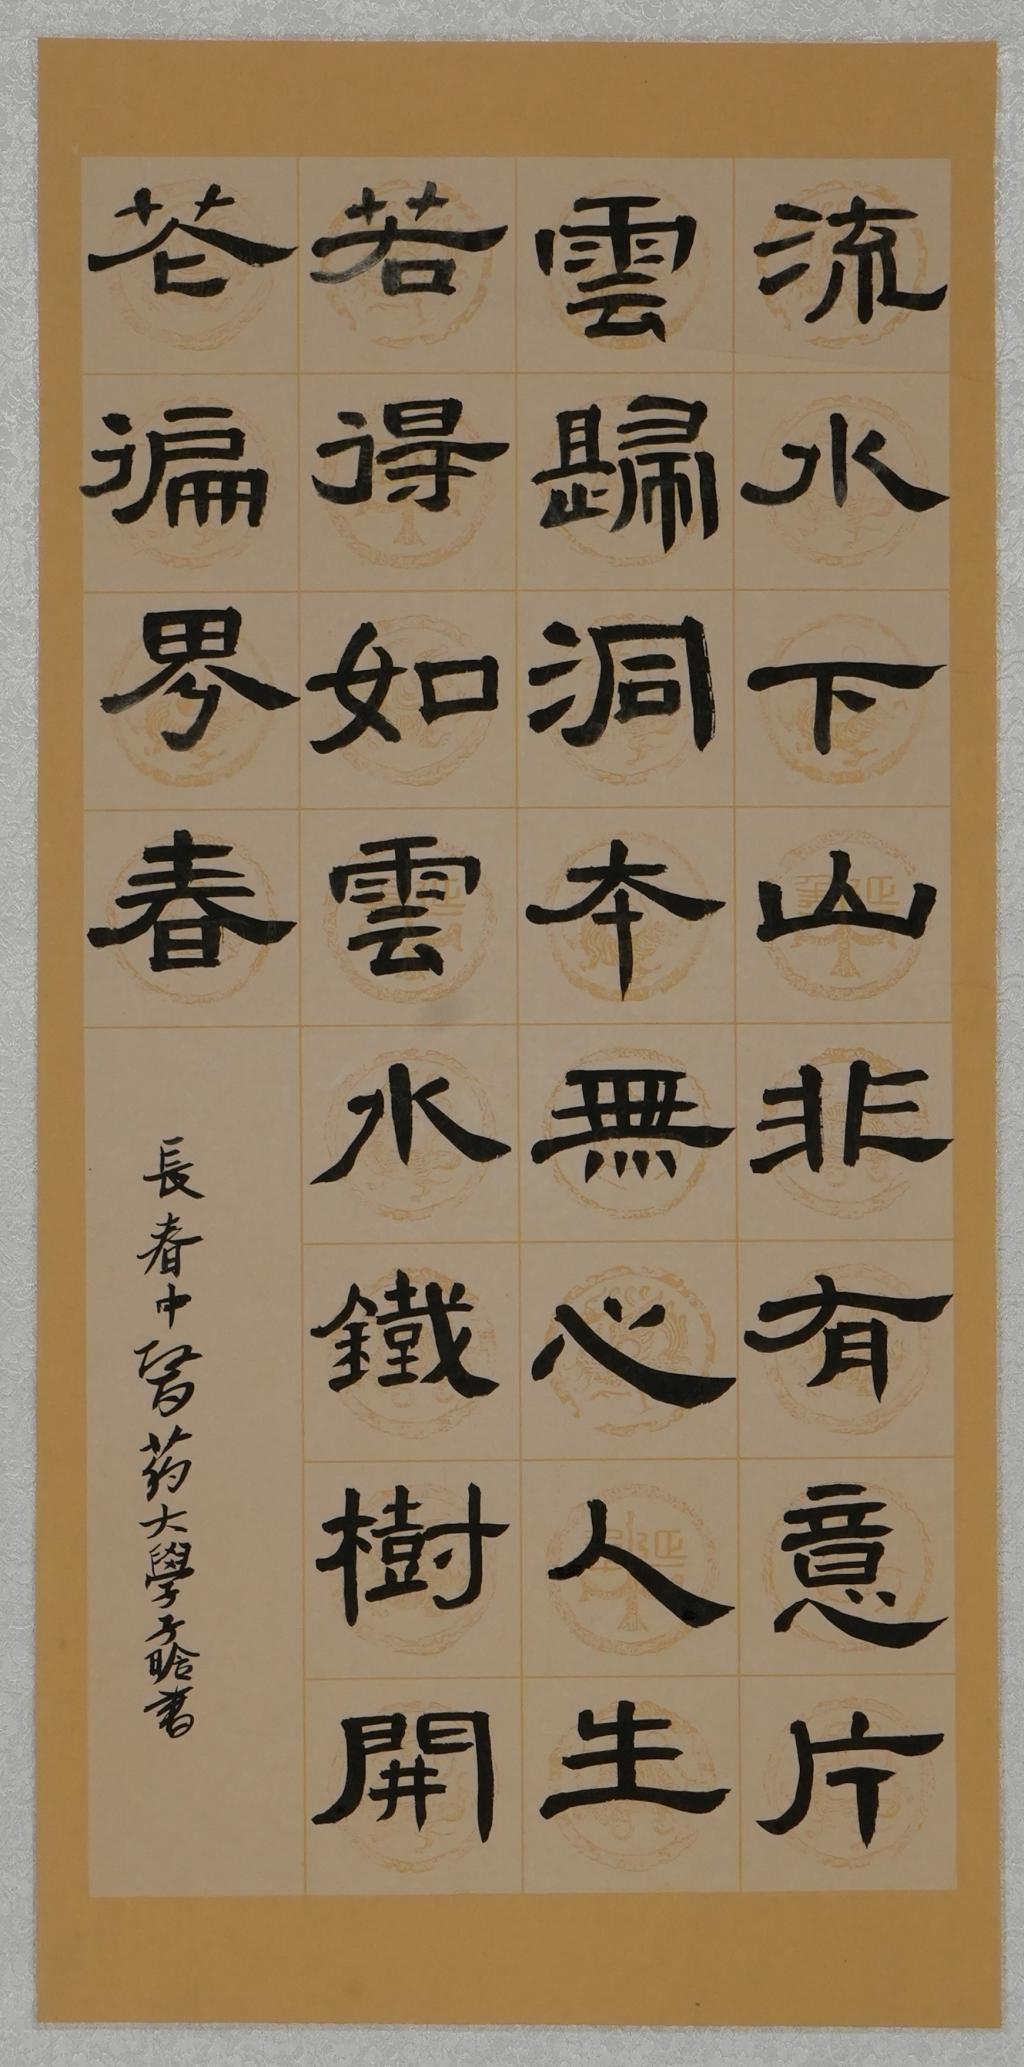 流水下山非有意片
雲歸洞本無心人生
若得如雲水鐵樹開
花徧界春
長春中醫药大學子晗書